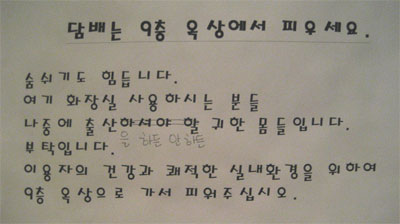 담배는 9층 옥상에서 피우세요.
숨쉬기도 힘듭니다.
여기 화장실 사용하시는 분들
나중에 출산하셔야 할 귀한 몸들입니다.
을 하든 안 하든
부탁입니다.
이용자의 건강과 쾌적한 실내환경을 위하여
9층 옥상으로 가서 피워주십시오.